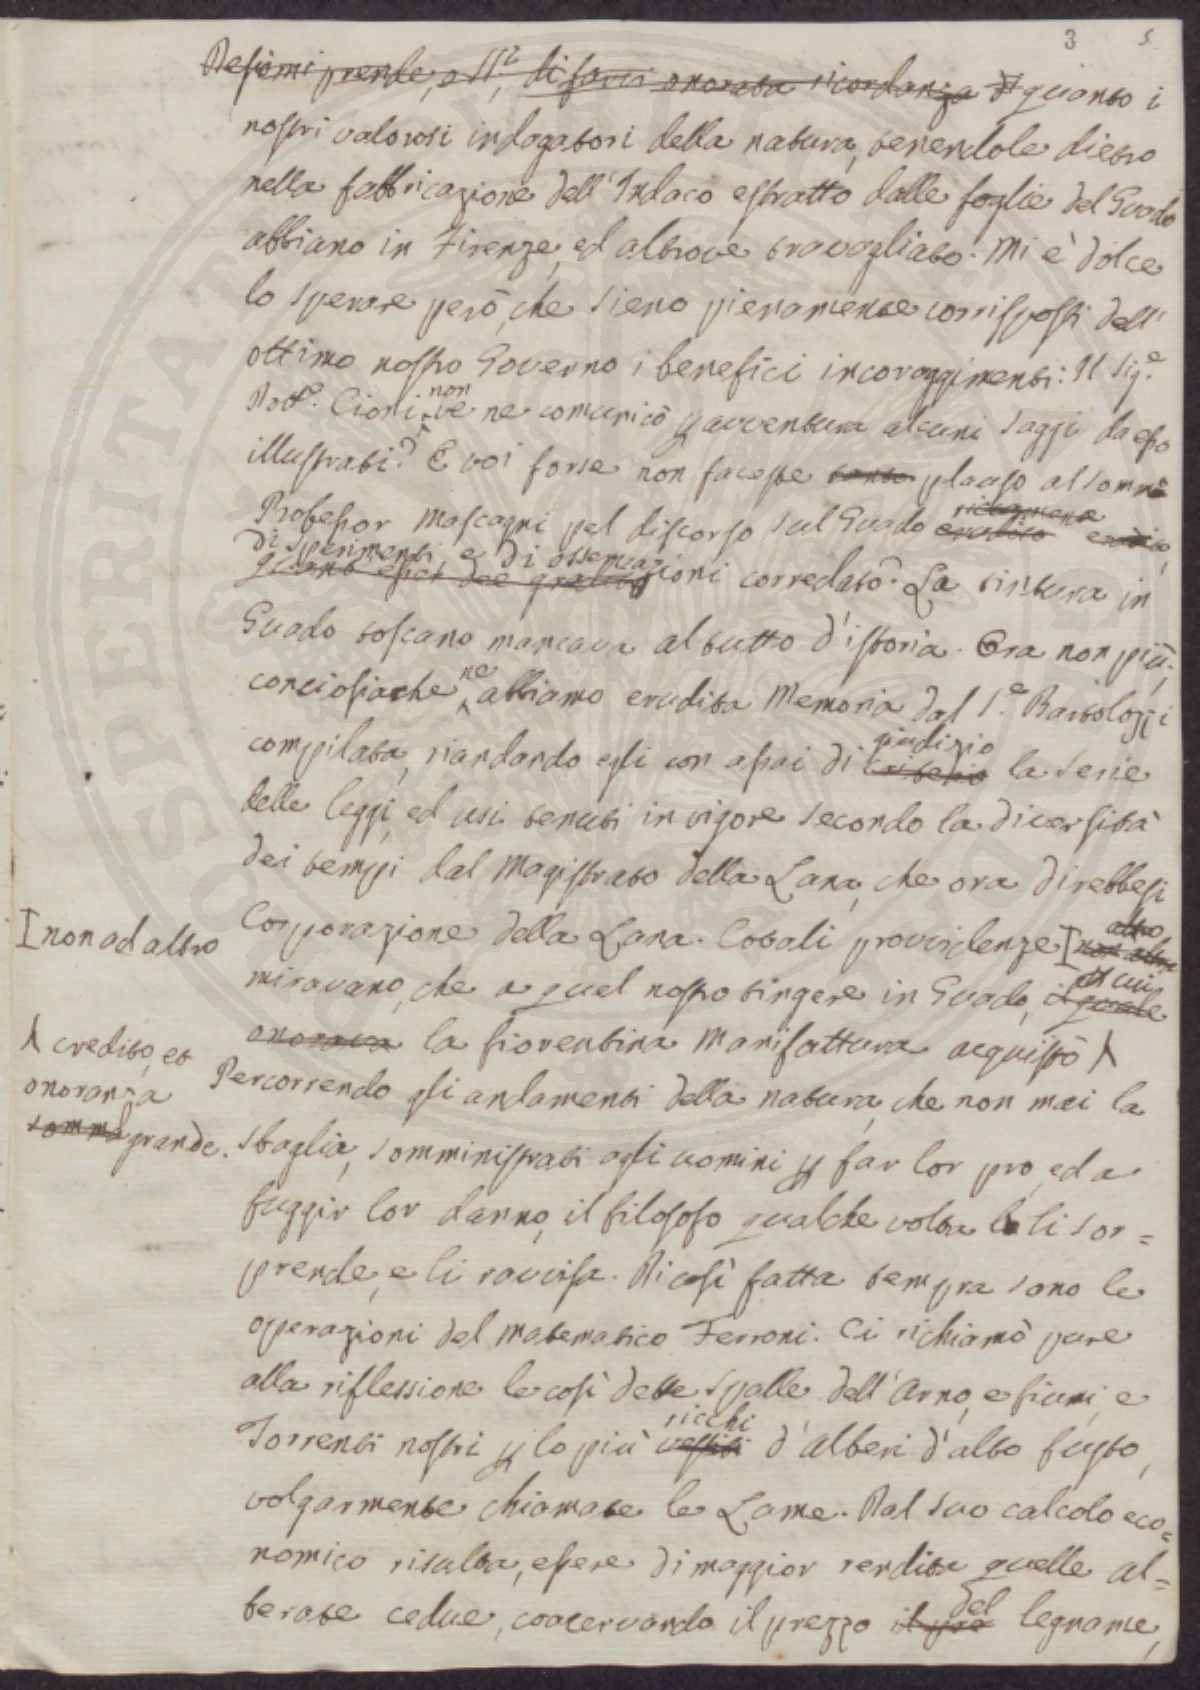 3 5
Desiomi prende, o SS.ri, di farvi onorata ricordanza di quanto i
nostri valorosi indagatori della natura, tenendole dietro
nella fabbricazione dell'Indaco estratto dalle foglie del Guado
abbiano in Firenze, ed altrove travagliato. Mi è dolce
lo sperare però, che sieno pienamente corrisposti dall'
ottimo nostro Governo i benefici incoraggimenti: Il Sig.e
Dott.e Cioni non ve ne comunicò p avventura alcuni saggi da esso
illustrati? E voi forse non faceste tanto plauso al sommo
Professor Mascagni pel discorso sul Guado erudito
di sperimenti e di osservazioni corredato? La tintura in
Guado toscano mancava al tutto d'istoria. Ora non più;
conciosiache ne abbiamo erudita Memoria dal S.e Bartolozzi
compilata, riandando egli con assai di criterio giudizio la serie
delle leggi, ed usi tenuti in vigore secondo la diversità
dei tempi dal Magistrato della Lana, che ora direbbesi
Corporazione della Lana. Cotali provvidenze non altro
I non ad altro
miravano, che a quel nostro tingere in Guado, il quale di cui
onorava la fiorentina Manifattura acquistò
credito, ed
onoranza
somma grande.
Percorrendo gli andamenti della natura, che non mai la
sbaglia, somministrati agli uomini p far lor pro, ed a
fuggir lor danno, il filosofo qualche volta li sor=
prende, e li ravvisa. Di così fatta tempra sono le
operazioni del matematico Ferroni. Ci richiamò pure
alla riflessione le così dette spalle dell'Arno, e fiumi, e
Torrenti nostri p lo più vestiti ricchi d'alberi d'alto fusto,
volgarmente chiamate le Lame. Dal suo calcolo eco=
nomico risulta, essere di maggior rendita quelle al=
berate cedue, coacervando il prezzo il pre del legname,